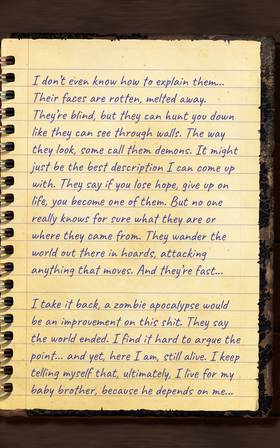 I don't even know how to explain them...
Their faces are rotten, melted away.
They're blind, but they can hunt you down
like they can see through walls. The way
they look, some call them demons. It might
just be the best description I can come up
with. They say if you lose hope, give up on
life, you become one of them. But no one
really knows for sure what they are or
where they came from. They wander the
world out there in hoards, attacking
anything that moves. And they're fast...

I take it back, a zombie apocalypse would
be an improvement on this shit. They say
the world ended. I find it hard to argue the
point... and yet, here I am, still alive. I keep
telling myself that, ultimately, I live for my
baby brother, because he depends on me...